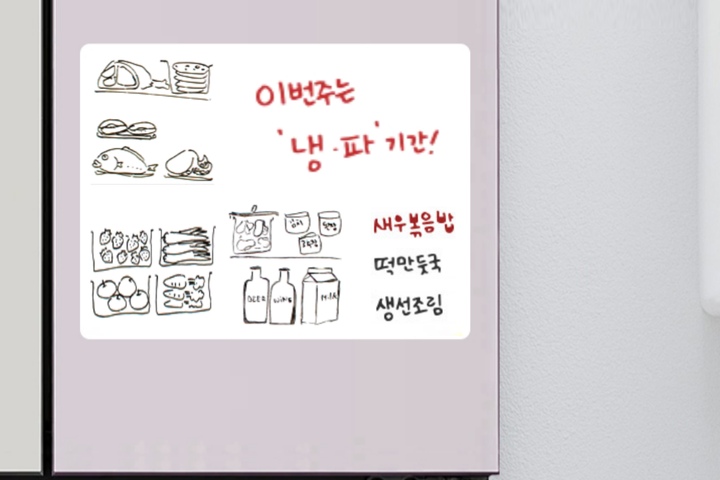 이번주는
'냉·파' 기간!
새우볶음밥
떡만둣국
생선조림
BEER
WINE
MILK